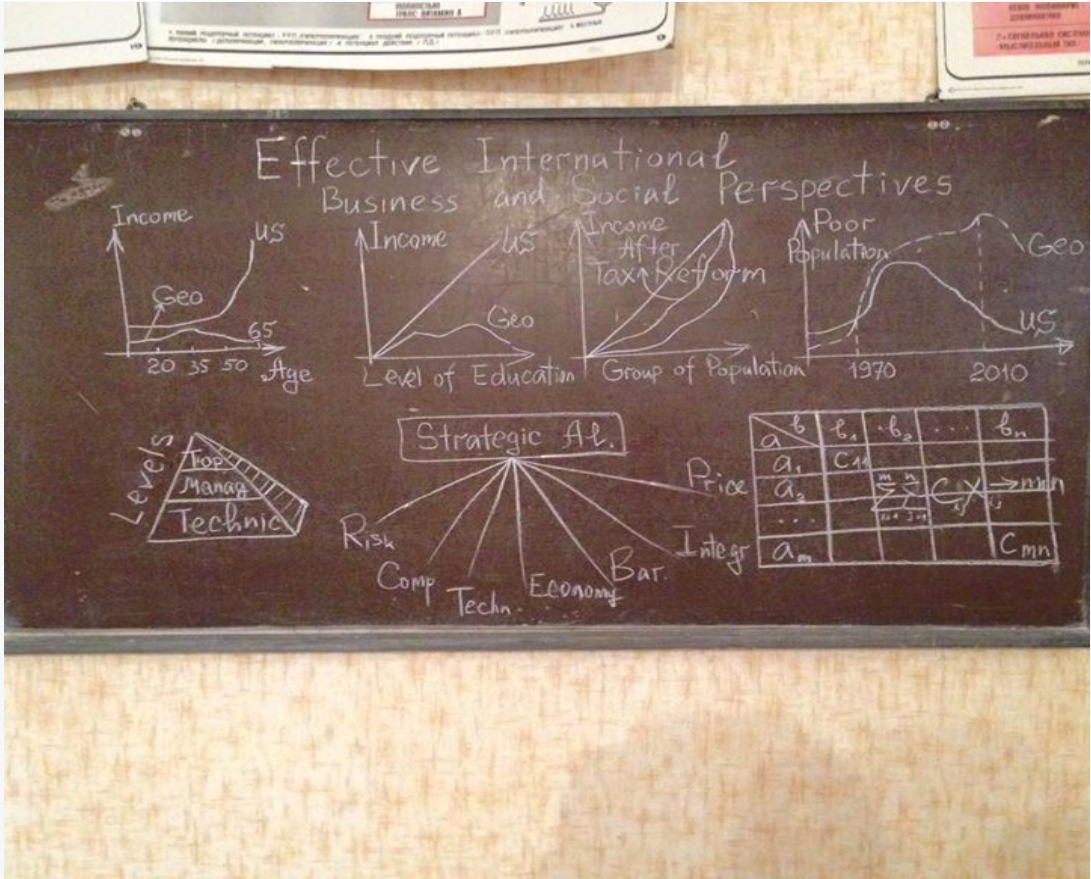 ПОЛНОСТЬЮ
ТРАНС-ВИТАМИН А
Effective International
Business and Social Perspectives
Income
US
Geo
65
20 35 50 Age
Income
US
Geo
Level of Education
Income
After
Tax Reform
Group of Population
Poor
Population
Geo
US
1970 2010
Levels
Top
Manag
Technic
Strategic Al.
Risk
Comp
Techn.
Economy
Bar.
Integr
Price
a b b₁ b₂ ... bₙ
a₁ C₁₁
a₂
...
aₘ Cₘₙ
∑ᵢ₌₁ᵐ ∑ⱼ₌₁ⁿ Cᵢⱼ Xᵢⱼ → min